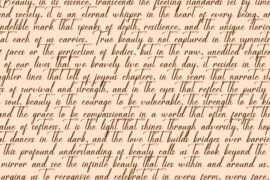 Beauty, in its essence, transcends the fleeting standards set by time
and society, it is an eternal whisper in the heart of every being, an
indelible mark that speaks of depth, resilience, and the unique stories
that each of us carries. True beauty is not captured in the symmetry
of faces or the perfection of bodies, but in the raw, unedited chapters
of our lives that we bravely live out each day. it resides in the
laughter lines that tell of joyous chapters, in the scars that narrate
of survival and strength, and in the eyes that reflect the purity
soul. beauty is the courage to be vulnerable, the strength to be
and the grace to be compassionate in a world that often forgets
value of softness. it is the light that shines through adversity, the
that dances in the dark, and the love that builds bridges over barriers
this profound understanding of beauty calls us to look beyond the
mirror and see the infinite beauty that lies within and around us,
urging us to recognize and celebrate it in every face, in every